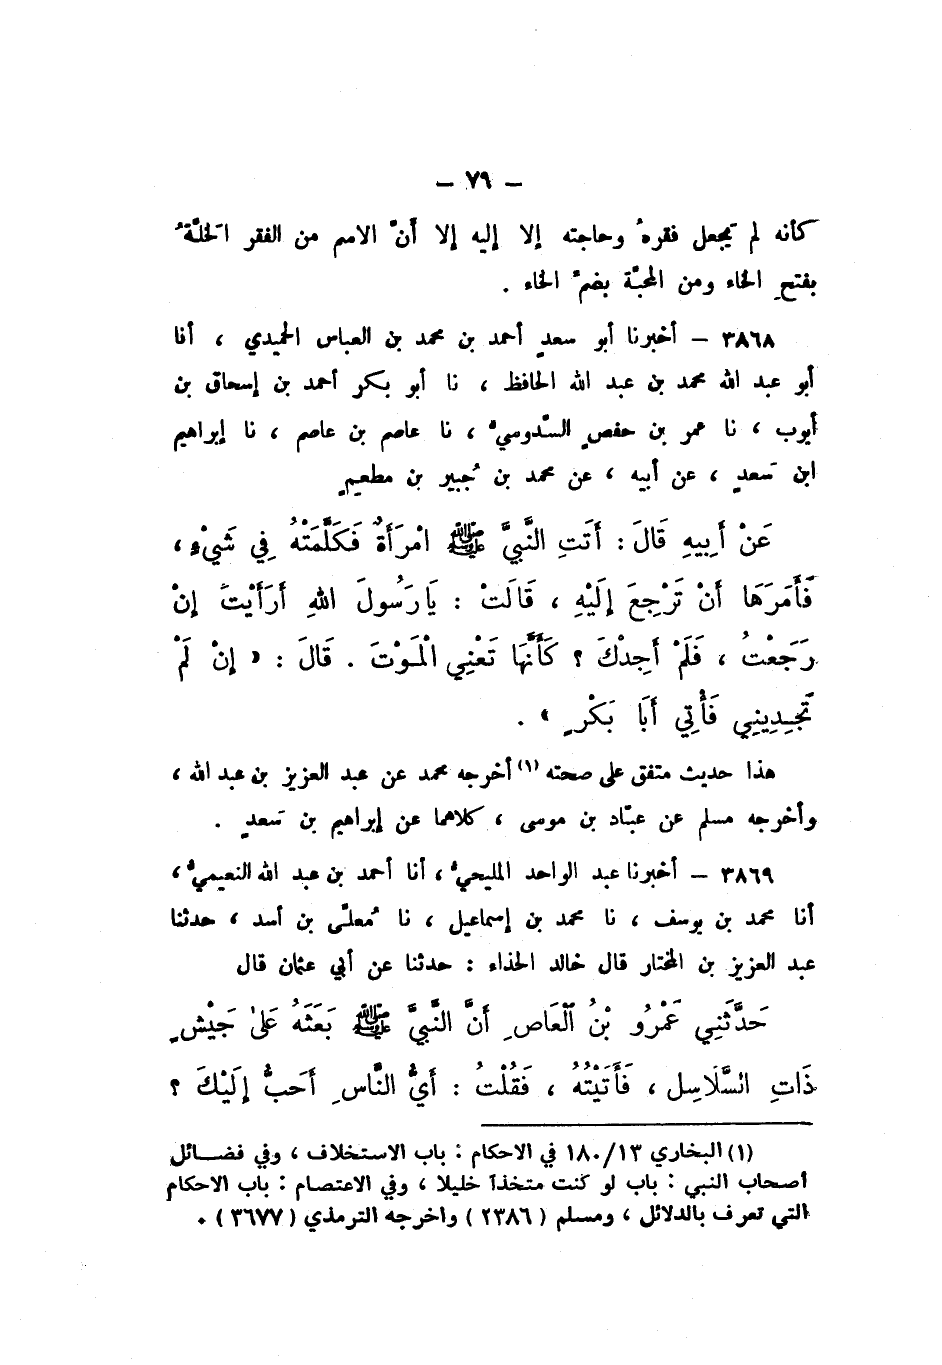 – ٧٩ –
كأنه لم يَجعل فقرهُ وحاجته إلا إليه إلا أنّ الاسم من الفقر الَخلّةُ
بفتحِ الخاء ومن المحبّة بضمّ الخاء .
٣٨٦٨ – أخبرنا أبو سعدٍ أحمد بن محمد بن العباس الحميدي ، أنا
أبو عبد الله محمد بن عبد الله الحافظ ، نا أبو بكر أحمد بن إسحاق بن
أيوب ، نا عمر بن حفصٍ السّدوسيُّ ، نا عاصم بن عاصم ، نا إبراهيم
ابن سَعدٍ ، عن أبيه ، عن محمد بن جُبير بن مطعمٍ
عَنْ أَبِيهِ قَالَ : أَتَتِ النَّبِيَّ ﷺ امْرَأَةٌ فَكَلَّمَتْهُ فِي شَيْءٍ ،
فَأَمَرَهَا أَنْ تَرْجِعَ إِلَيْهِ ، قَالَتْ : يَا رَسُولَ اللهِ أَرَأَيْتَ إِنْ
رَجَعْتُ ، فَلَمْ أَجِدْكَ ؟ كَأَنَّهَا تَعْنِي الْمَوْتَ . قَالَ : « إِنْ لَمْ
تَجِدِينِي فَأْتِي أَبَا بَكْرٍ » .
هذا حديث متفق على صحته (١) أخرجه محمد عن عبد العزيز بن عبد الله ،
وأخرجه مسلم عن عبّاد بن موسى ، كلاهما عن إبراهيم بن سَعدٍ .
٣٨٦٩ – أخبرنا عبد الواحد المليحيُّ ، أنا أحمد بن عبد الله النعيميُّ ،
أنا محمد بن يوسف ، نا محمد بن إسماعيل ، نا مُعلّى بن أسد ، حدثنا
عبد العزيز بن المختار قال خالد الحذاء : حدثنا عن أبي عثمان قال
حَدَّثَنِي عَمْرُو بْنُ الْعَاصِ أَنَّ النَّبِيَّ ﷺ بَعَثَهُ عَلَى جَيْشٍ
ذَاتِ السَّلَاسِلِ ، فَأَتَيْتُهُ ، فَقُلْتُ : أَيُّ النَّاسِ أَحَبُّ إِلَيْكَ ؟
(١) البخاري ١٨٠/١٣ في الاحكام : باب الاستخلاف ، وفي فضائل
أصحاب النبي : باب لو كنت متخذاً خليلا ، وفي الاعتصام : باب الاحكام
التي تعرف بالدلائل ، ومسلم ( ٢٣٨٦ ) واخرجه الترمذي ( ٣٦٧٧ ) .